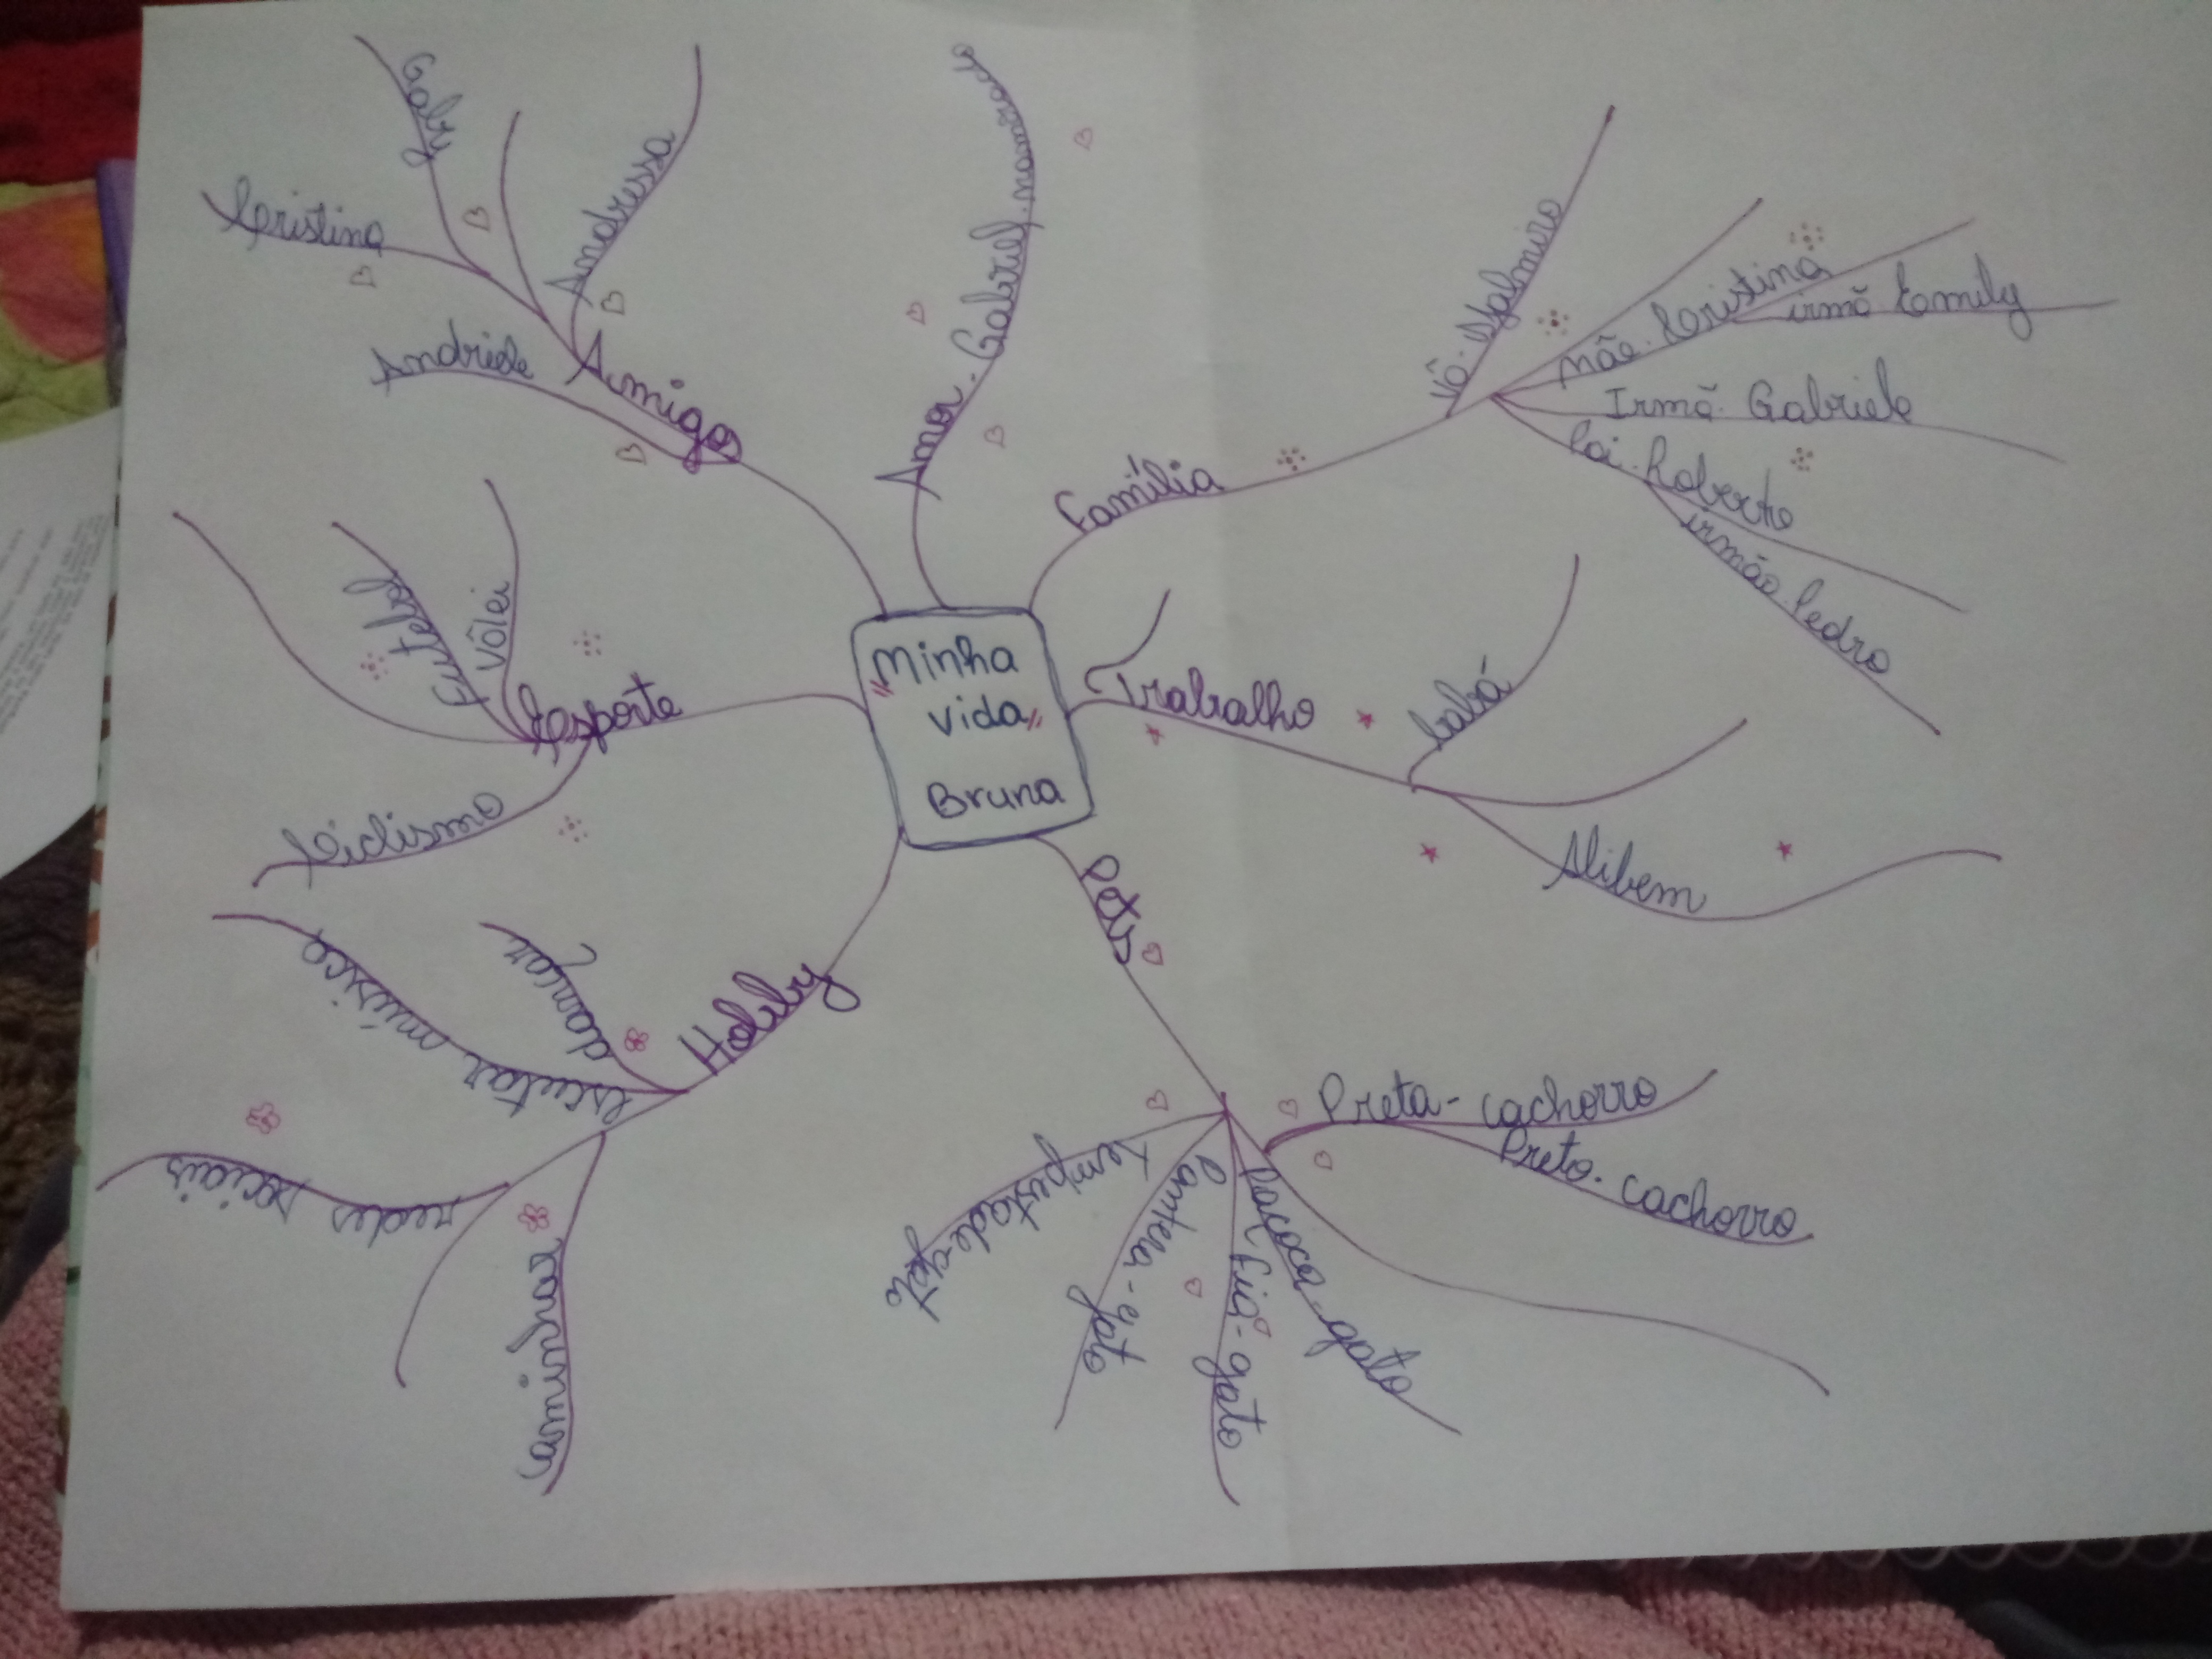 Minha
"vida"
Bruna
Amigos
Gaby
Cristina
Andressa
Andriele
Amor. Gabriel namorado
Família
Vô. Malmiro
mãe. Cristina
irmã Emily
Irmã. Gabriele
Pai. Roberto
irmão. Pedro
Trabalho
babá
Alibem
Pets
Preta - cachorro
Preto. cachorro
Paçoca - gato
Fiá - gato
Pantera - gato
Tempestade - gato
Hobby
dançar
escutar música
redes sociais
caminhar
Esporte
Vôlei
Futebol
Ciclismo